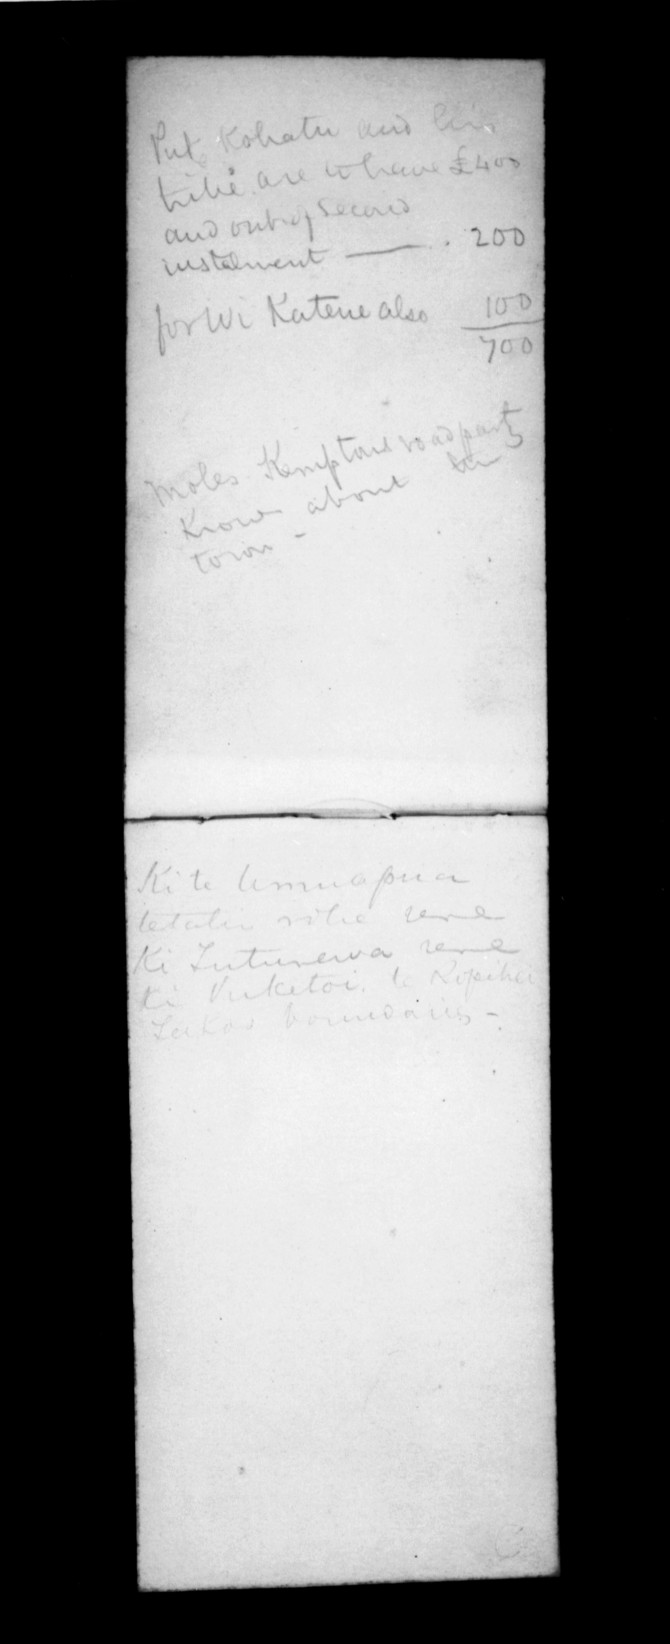 Puke Kohatu and his
tribe are to have £400
and out of second
instalment — . 200
for Wi Katene also 100
700
Moles Kempton's road party
Knows about the
town -
Ki te
rohe rere
Ki Huturewa rere
Ki Puketoi. te
boundaries -